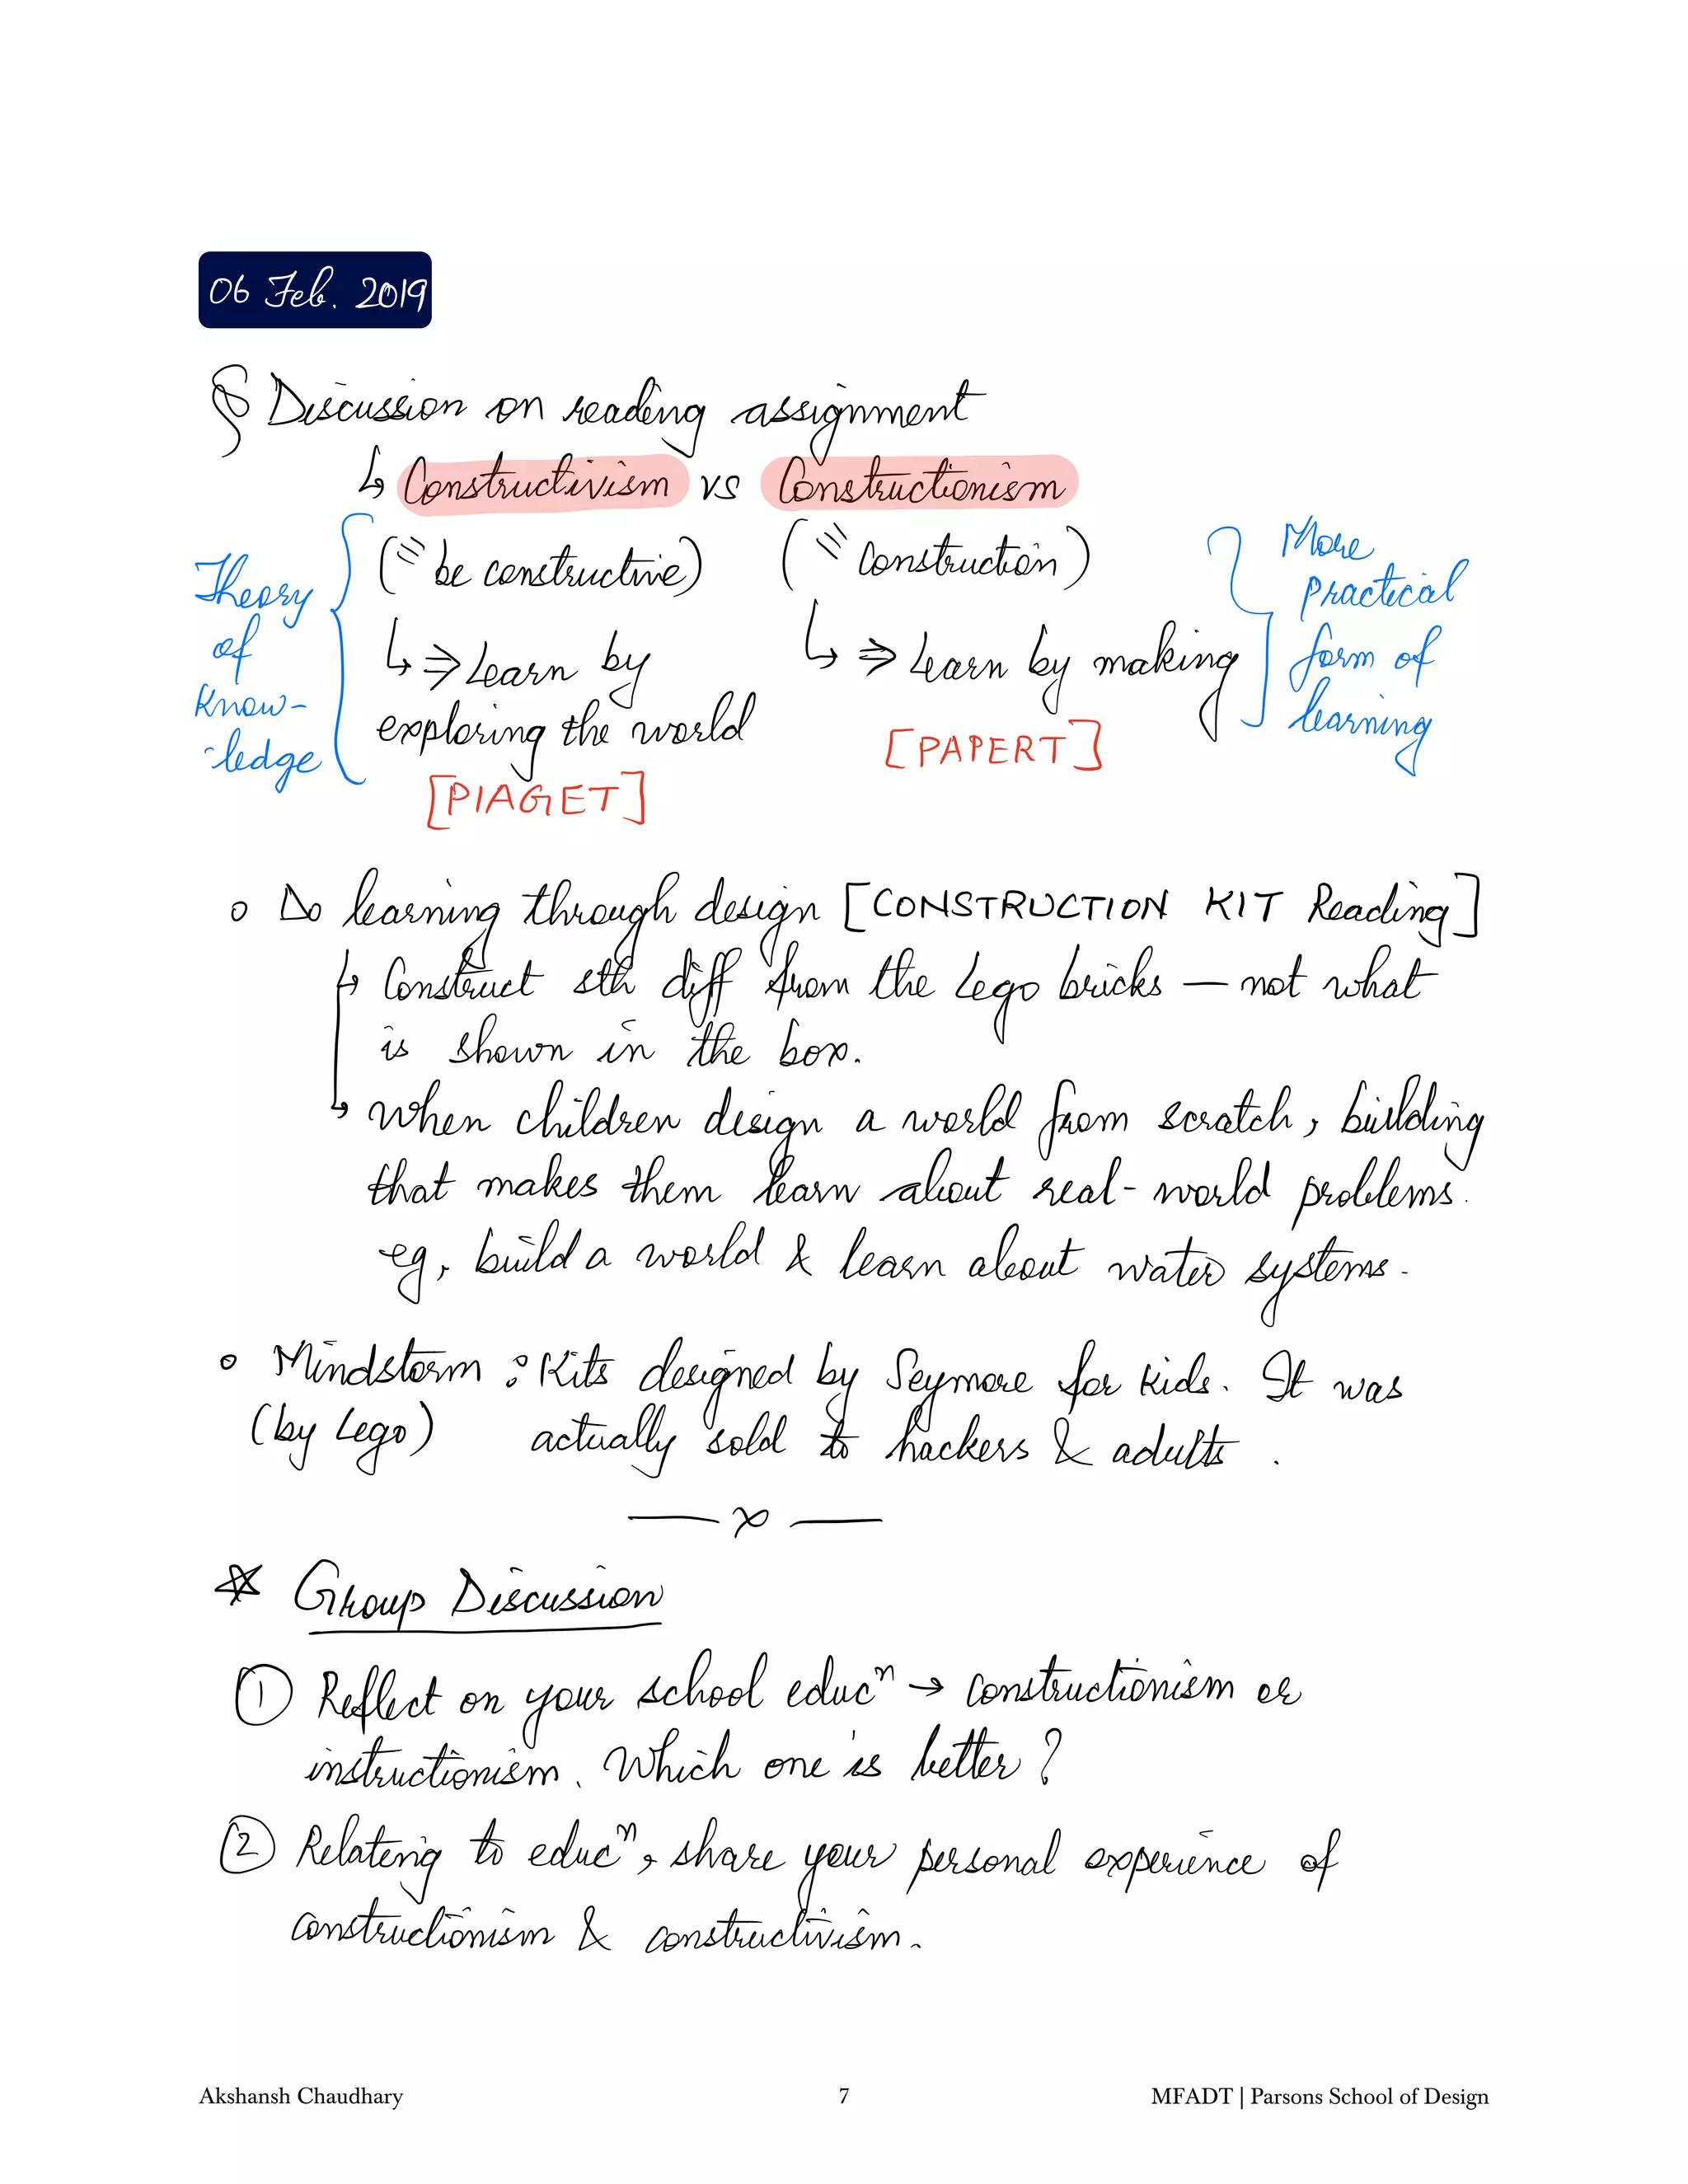 06 Feb. 2019
§ Discussion on reading assignment
↳ Constructivism vs Constructionism
(≡ be constructive) (≡ Construction)
Theory of Know- -ledge
↳ ⇒ Learn by exploring the world
↳ ⇒ Learn by making
More practical form of learning
[PAPERT]
[PIAGET]
o Do learning through design [CONSTRUCTION KIT Reading]
↳ Construct sth diff from the Lego bricks — not what
is shown in the box.
↳ When children design a world from scratch, building
that makes them learn about real-world problems.
eg, build a world & learn about water systems.
o Mindstorm : Kits designed by Seymore for kids. It was
(by Lego) actually sold to hackers & adults.
— x —
* Group Discussion
① Reflect on your school educⁿ → constructionism or
instructionism. Which one is better?
② Relating to educⁿ, share your personal experience of
constructionism & constructivism.
Akshansh Chaudhary 7 MFADT | Parsons School of Design